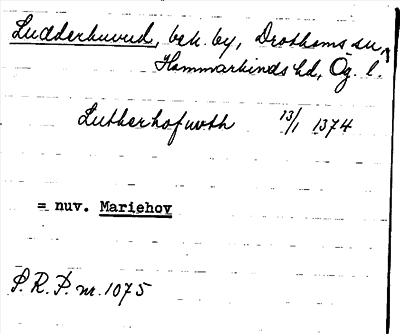 Ludderhuvud, bek. by, Drothems sn,
Hammarkinds hd, Ög. l.
Lutherhofwoth 13/1 1374
= nuv. Mariehov
P.R.P. nr. 1075